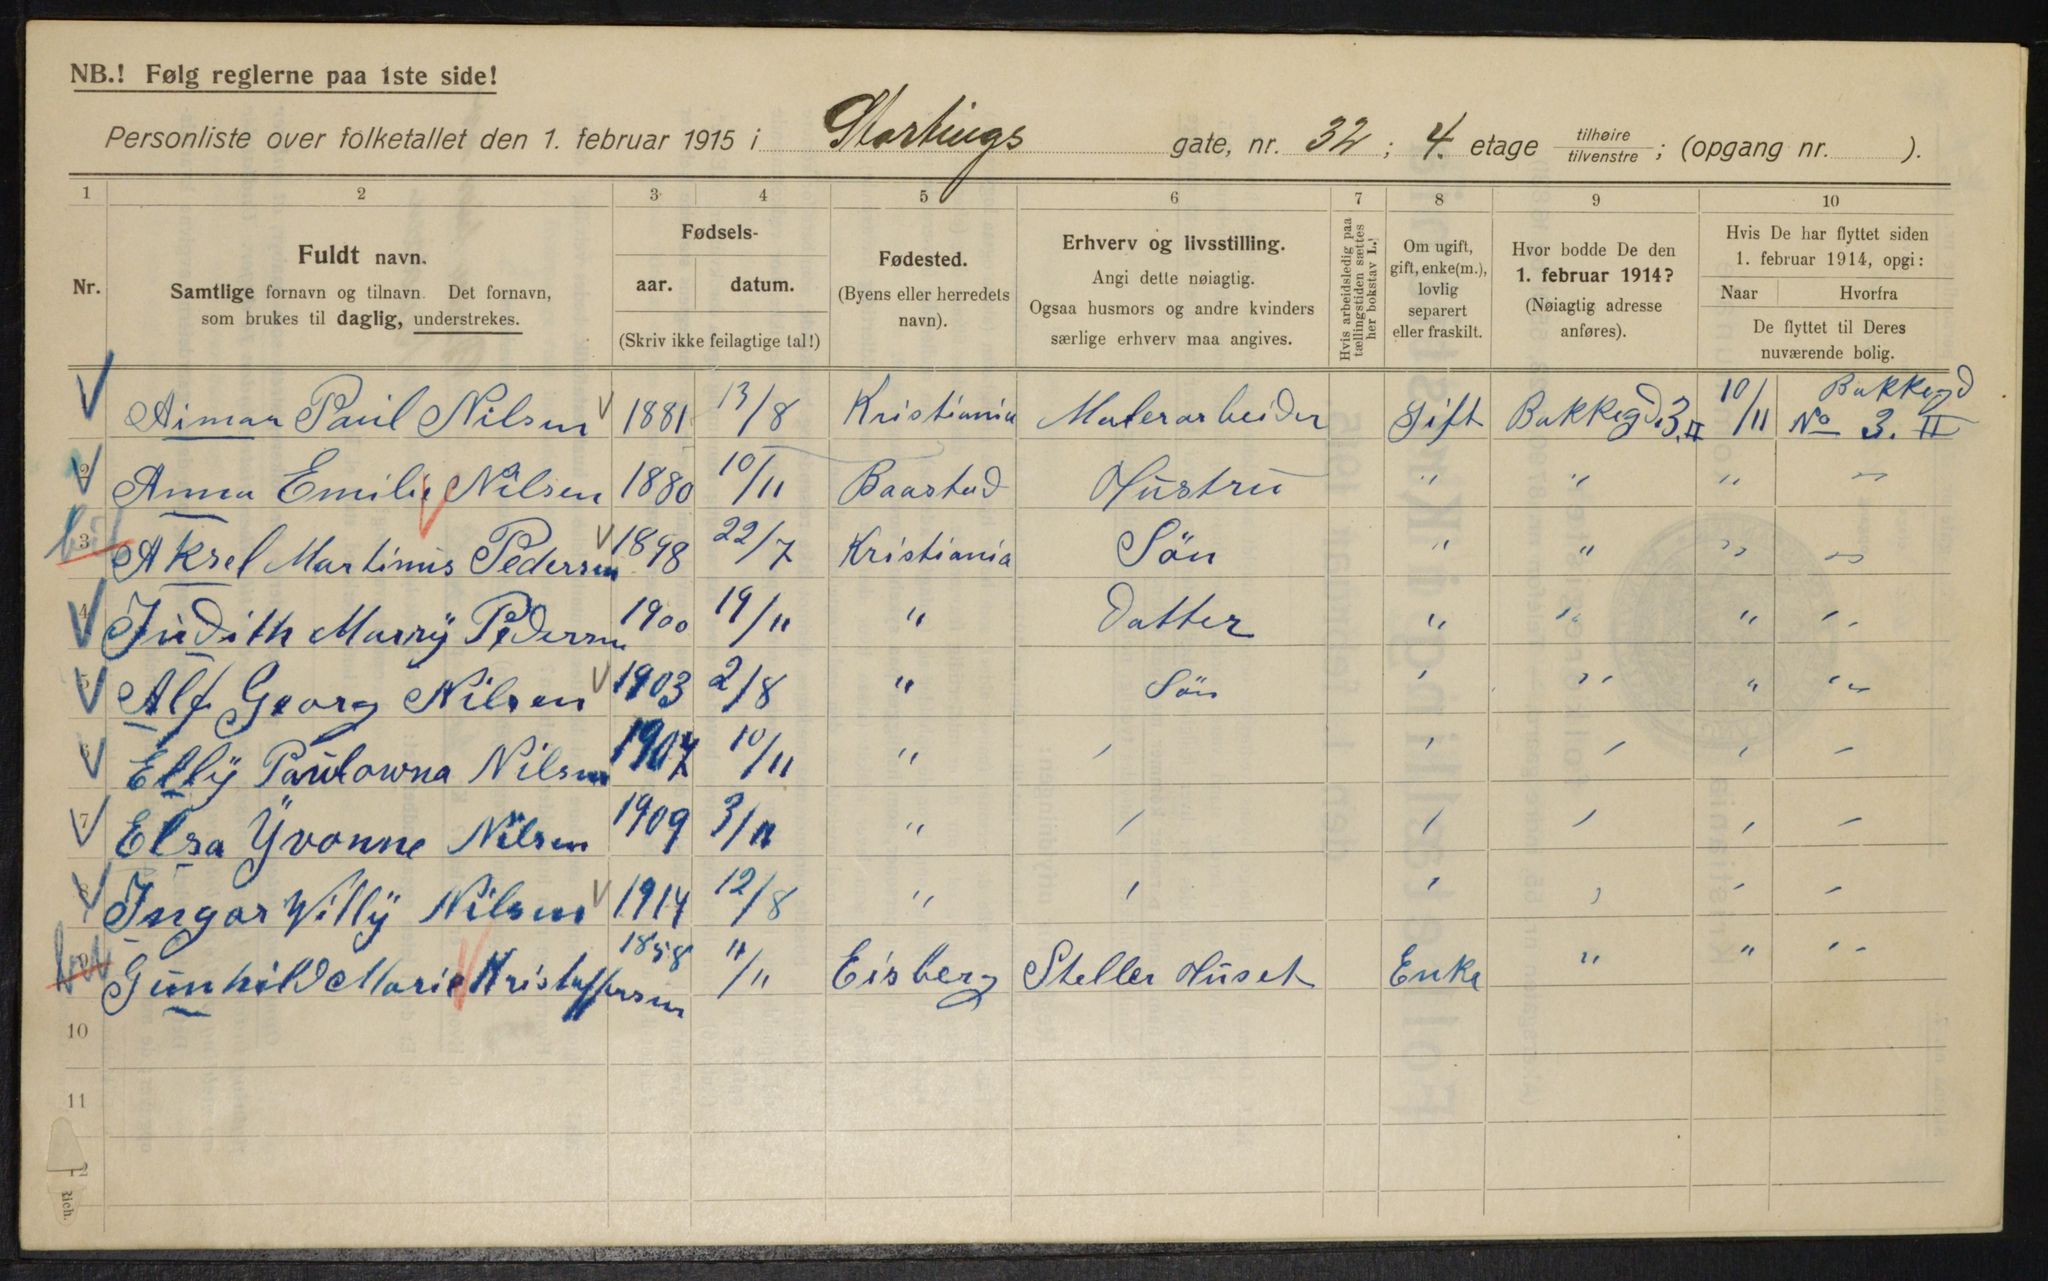 NB.! Følg reglerne paa 1ste side!
Personliste over folketallet den 1. februar 1915 i Stortings gate, nr. 32 ; 4. etage tilhøire tilvenstre ; (opgang nr. ).
1 2 3 4 5 6 7 8 9 10
Nr.
Fuldt navn.
Samtlige fornavn og tilnavn. Det fornavn,
som brukes til daglig, understrekes.
Fødsels-
aar. datum.
(Skriv ikke feilagtige tal!)
Fødested.
(Byens eller herredets
navn).
Erhverv og livsstilling.
Angi dette nøiagtig.
Ogsaa husmors og andre kvinders
særlige erhverv maa angives.
Hvis arbeidsledig paa
tællingstiden sættes
her bokstav L.
Om ugift,
gift, enke(m.),
lovlig
separert
eller fraskilt.
Hvor bodde De den
1. februar 1914?
(Nøiagtig adresse
anføres).
Hvis De har flyttet siden
1. februar 1914, opgi:
Naar Hvorfra
De flyttet til Deres
nuværende bolig.
Aimar Paul Nilsen 1881 13/8 Kristiania Malerarbeider Gift Bakkegd. 3. II 10/11 Bakkegd No 3. II
2 Anna Emilie Nilsen 1880 10/11 Baastad Hustru " " " "
3 Aksel Martinius Pedersen 1898 22/7 Kristiania Sön " " " "
4 Judith Marry Pedersen 1900 19/11 " Datter " " " "
5 Alf Georg Nilsen 1903 2/8 " Sön " " " "
6 Elly Paulowna Nilsen 1907 10/11 " " " " " "
7 Elsa Yvonne Nilsen 1909 3/11 " " " " " "
8 Ingar Willy Nilsen 1914 12/8 " " " " " "
9 Gunhild Marie Kristoffersen 1858 11/11 Eisberg Steller Huset Enke " " "
10
11
12